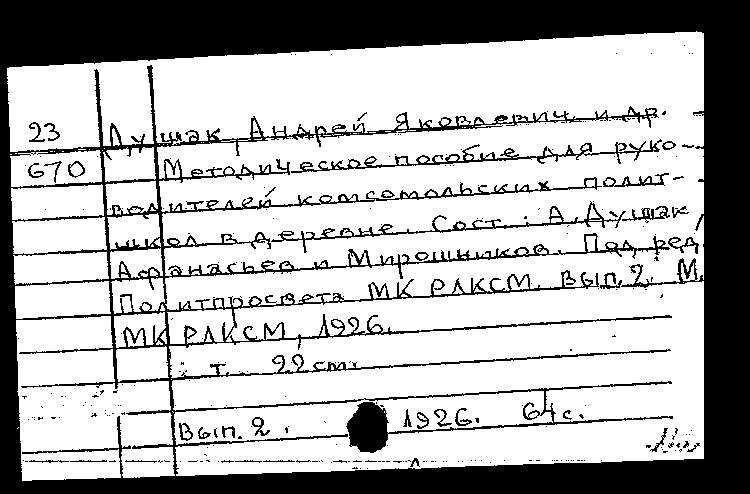 23 Душак, Андрей Яковлевич и др.
670 Методическое пособие для руко-
водителей комсомольских полит-
школ в деревне. Сост.: А. Душак,
Афанасьев и Мирошников. Под ред.
Политпросвета МК РЛКСМ. Вып. 2. М.
МК РЛКСМ, 1926.
т. 22 см.
Вып. 2. 1926. 64 с.